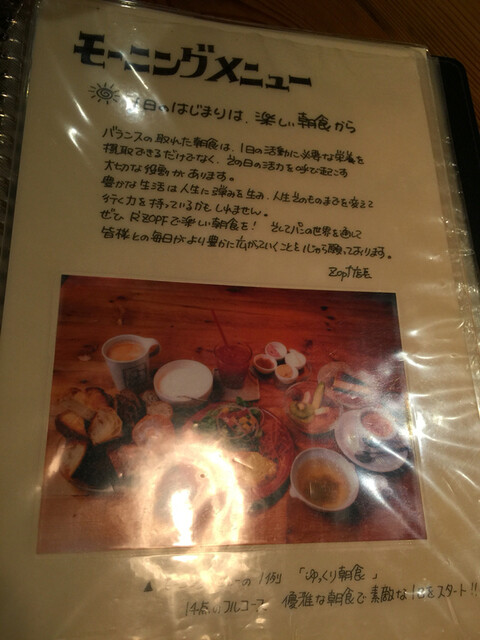 モーニングメニュー
毎日のはじまりは、楽しい朝食から
バランスの取れた朝食は、1日の活動に必要な栄養を
摂取できるだけでなく、その日の活力を呼び起こす
大切な役割があります。
豊かな生活は人生に弾みを生み、人生そのものまでを変えて
行く力を持っているかもしれません。
ぜひ R'ZOPFで楽しい朝食を! そしてパンの世界を通して
皆様との毎日がより豊かに広がっていくことを心から願っております。
Zopf店主
の1例 「ゆっくり朝食」
14点のフルコース 優雅な朝食で素敵な1日をスタート!!